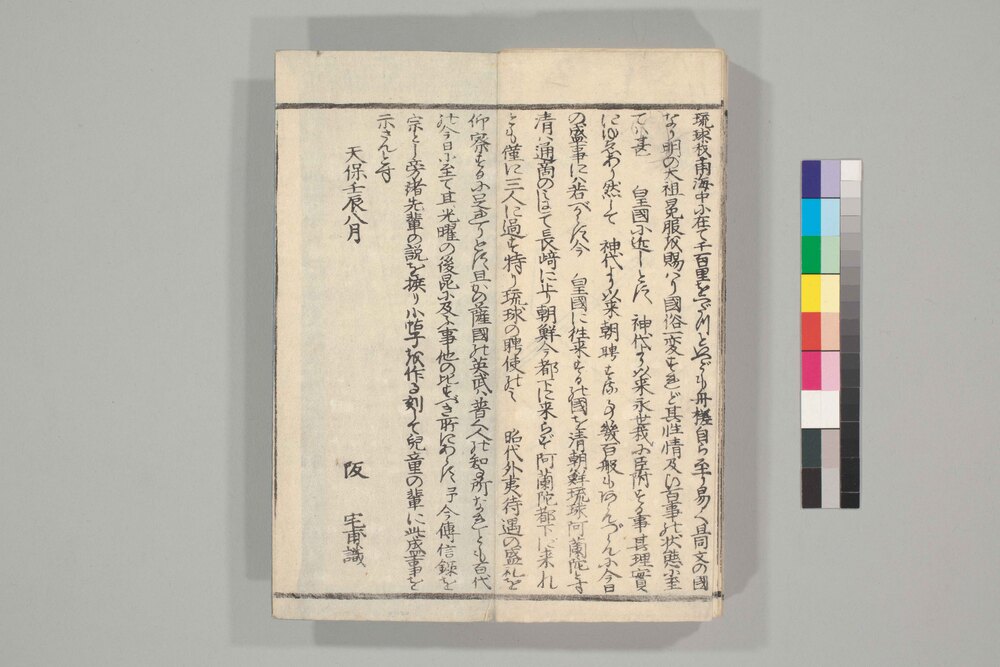 琉球ハ南海中に在て千百里をへだつといへども舟楫自ら至り易く且同文の國
なり明の大祖冕服を賜ハり國俗一変すれど其性情及ひ百事の状態に至
てハ甚 皇國に近しとす 神代より以来永世我に臣附する事其理實
にゆゑあり然して 神代より以来朝聘する事幾百般
の盛事にハ若べからず今 皇國に往来するの國を清朝鮮琉球阿蘭陀とす
清ハ通商のミにて長﨑に止り朝鮮今都下に来らず阿蘭陀都下に来れ
とも僅に三人に過す特り琉球の聘使のミ 昭代外夷待遇の盛礼を
仰察するに足れりとす且かの薩國の英武ハ普く人の知る所なれども百代
の今日に至て其光曜の後昆に及ふ事他の比すべき所にあらず予今傳信録を
宗とし旁諸先輩の説を採り小冊子を作る刻して兒童の輩に此盛事を
示さんと云
天保壬辰八月
阪 宅甫識